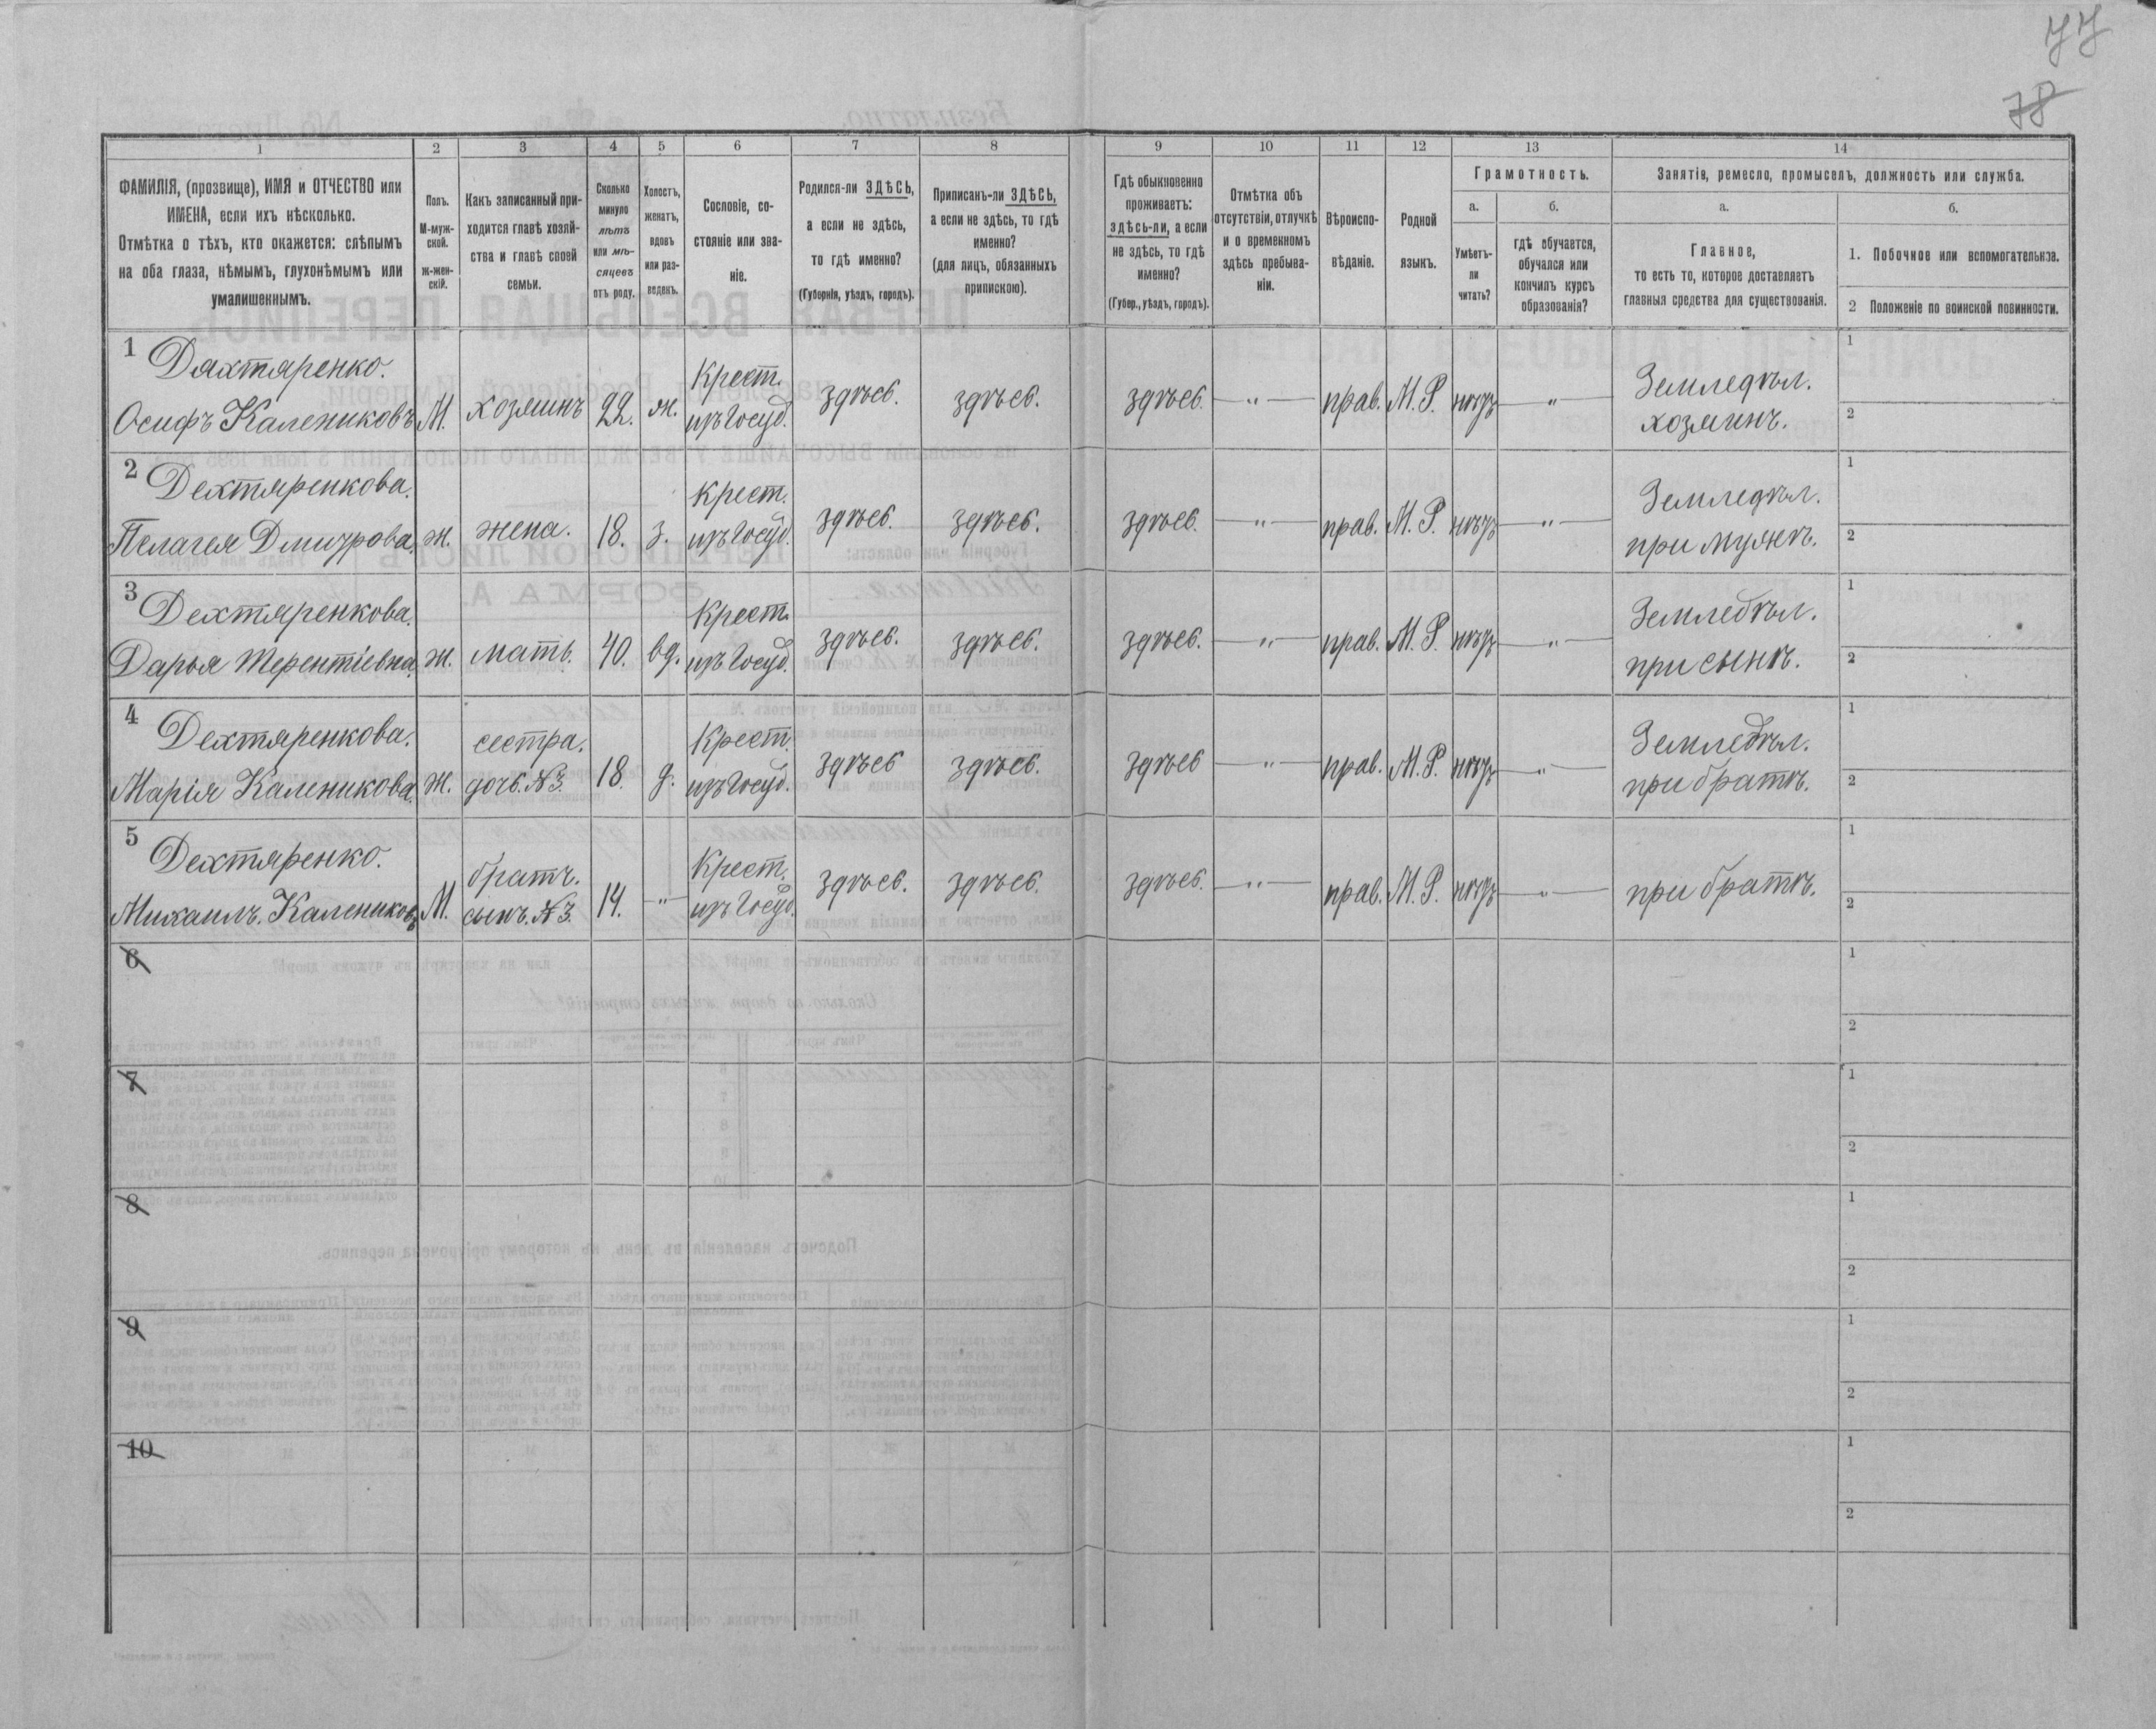 77
78
1 2 3 4 5 6 7 8 9 10 11 12 13 14
ФАМИЛІЯ, (прозвище), ИМЯ и ОТЧЕСТВО или
ИМЕНА, если ихъ нѣсколько.
Отмѣтка о тѣхъ, кто окажется: слѣпымъ
на оба глаза, нѣмымъ, глухонѣмымъ или
умалишеннымъ.
Полъ.
М-муж-
ской.
ж-жен-
скій.
Какъ записанный при-
ходится главѣ хозяй-
ства и главѣ своей
семьи.
Сколько
минуло
лѣтъ
или мѣ-
сяцевъ
отъ роду.
Холостъ,
женатъ,
вдовъ
или раз-
веденъ.
Сословіе, со-
стояніе или зва-
ніе.
Родился-ли ЗДѢСЬ,
а если не здѣсь,
то гдѣ именно?
(Губернія, уѣздъ, городъ).
Приписанъ-ли ЗДѢСЬ,
а если не здѣсь, то гдѣ
именно?
(для лицъ, обязанныхъ
припискою).
Гдѣ обыкновенно
проживаетъ:
здѣсь-ли, а если
не здѣсь, то гдѣ
именно?
(Губер., уѣздъ, городъ).
Отмѣтка объ
отсутствіи, отлучкѣ
и о временномъ
здѣсь пребыва-
ніи.
Вѣроиспо-
вѣданіе.
Родной
языкъ.
Грамотность.
а. б.
Умѣетъ-
ли
читать?
гдѣ обучается,
обучался или
кончилъ курсъ
образованія?
Занятіе, ремесло, промыселъ, должность или служба.
а. б.
Главное,
то есть то, которое доставляетъ
главныя средства для существованія.
1. Побочное или вспомогательное.
2 Положеніе по воинской повинности.
1 Дяхтяренко. Крест. Земледѣл. 1
Осифъ Калениковъ М. хозяинъ 22. ж. изъ Госуд. здѣсь. здѣсь. здѣсь. — " — прав. М.Р. нѣтъ — " — хозяинъ. 2
2 Дехтяренкова. Крест. Земледѣл. 1
Пелагея Дмитрова. ж. жена. 18. з. изъ Госуд. здѣсь. здѣсь. здѣсь. — " — прав. М.Р. нѣтъ — " — при мужѣ. 2
3 Дехтяренкова. Крест. Земледѣл. 1
Дарья Терентіевна. ж. мать. 40. вд. изъ Госуд. здѣсь. здѣсь. здѣсь. — " — прав. М.Р. нѣтъ — " — при сынѣ. 2
4 Дехтяренкова. сестра. Крест. Земледѣл. 1
Марія Каленикова. ж. дочь. №3. 18. д. изъ Госуд. здѣсь здѣсь. здѣсь — " — прав. М.Р. нѣтъ — " — при братѣ. 2
5 Дехтяренко. братъ. Крест. 1
Михаилъ. Калениковъ М. сынъ. №3. 14. — " — изъ Госуд. здѣсь. здѣсь. здѣсь. — " — прав. М.Р. нѣтъ — " — при братѣ. 2
6 1
2
7 1
2
8 1
2
9 1
2
10 1
2